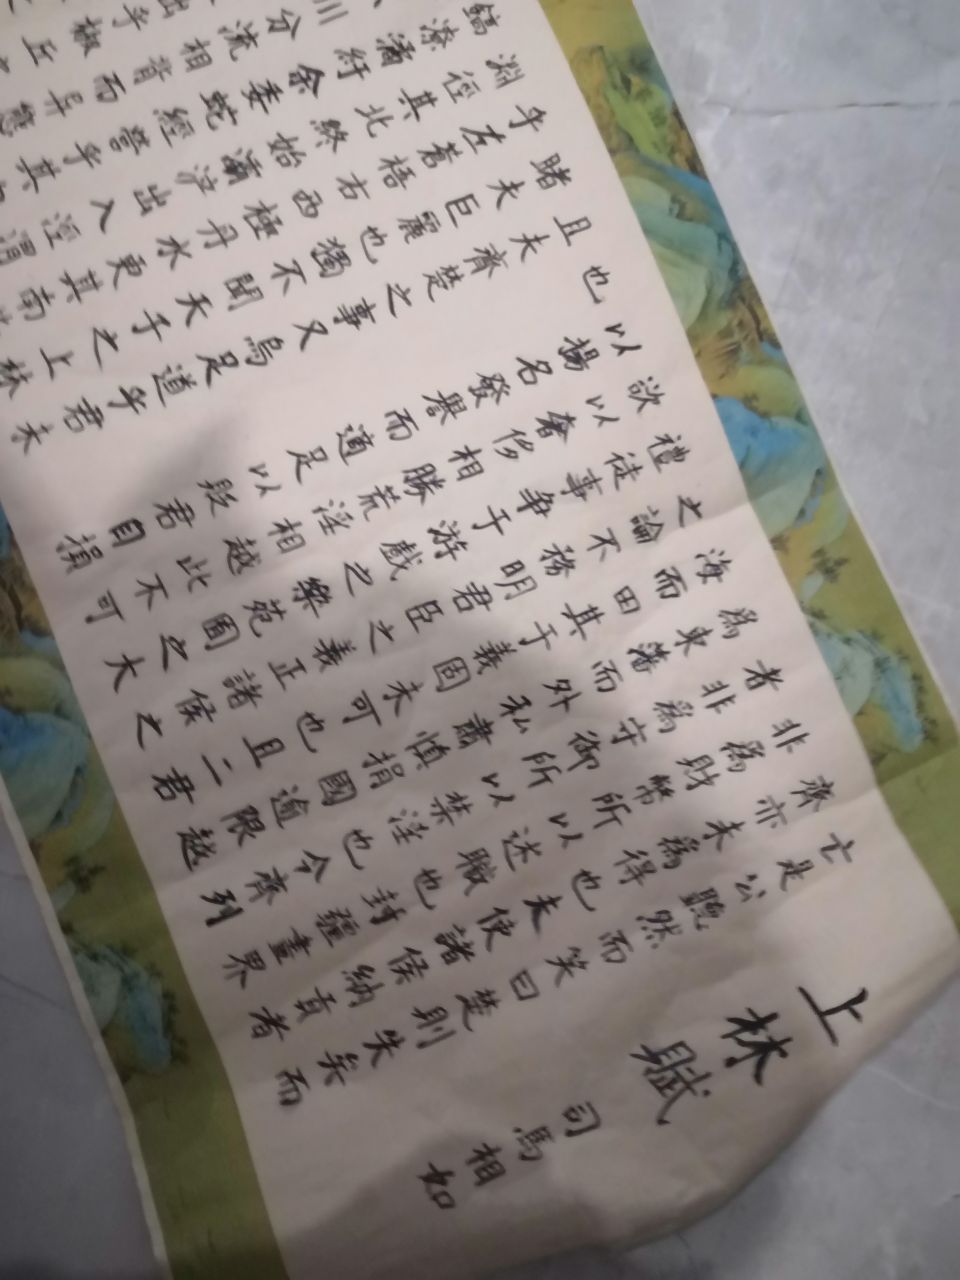 上林賦
司馬相如
亡是公聽然而笑曰楚則失矣而
齊亦未為得也夫使諸侯納貢者
非為財幣所以述職也封疆畫界
者非為守御所以禁淫也今齊列
為東藩而外私肅慎捐國逾限越
海而田其于義固未可也且二君
之論不務明君臣之義正諸侯之
禮徒事爭于游戲之樂苑囿之大
欲以奢侈相勝荒淫相越此不可
以揚名發譽而適足以貶君自損
也
且夫齊楚之事又烏足道乎君未
睹夫巨麗也獨不聞天子之上林
乎左蒼梧右西極丹水更其南
淵徑其北終始灞滻出入涇渭
鎬潦潏紆余委蛇經營乎其內
川分流相背而异態
出乎椒丘